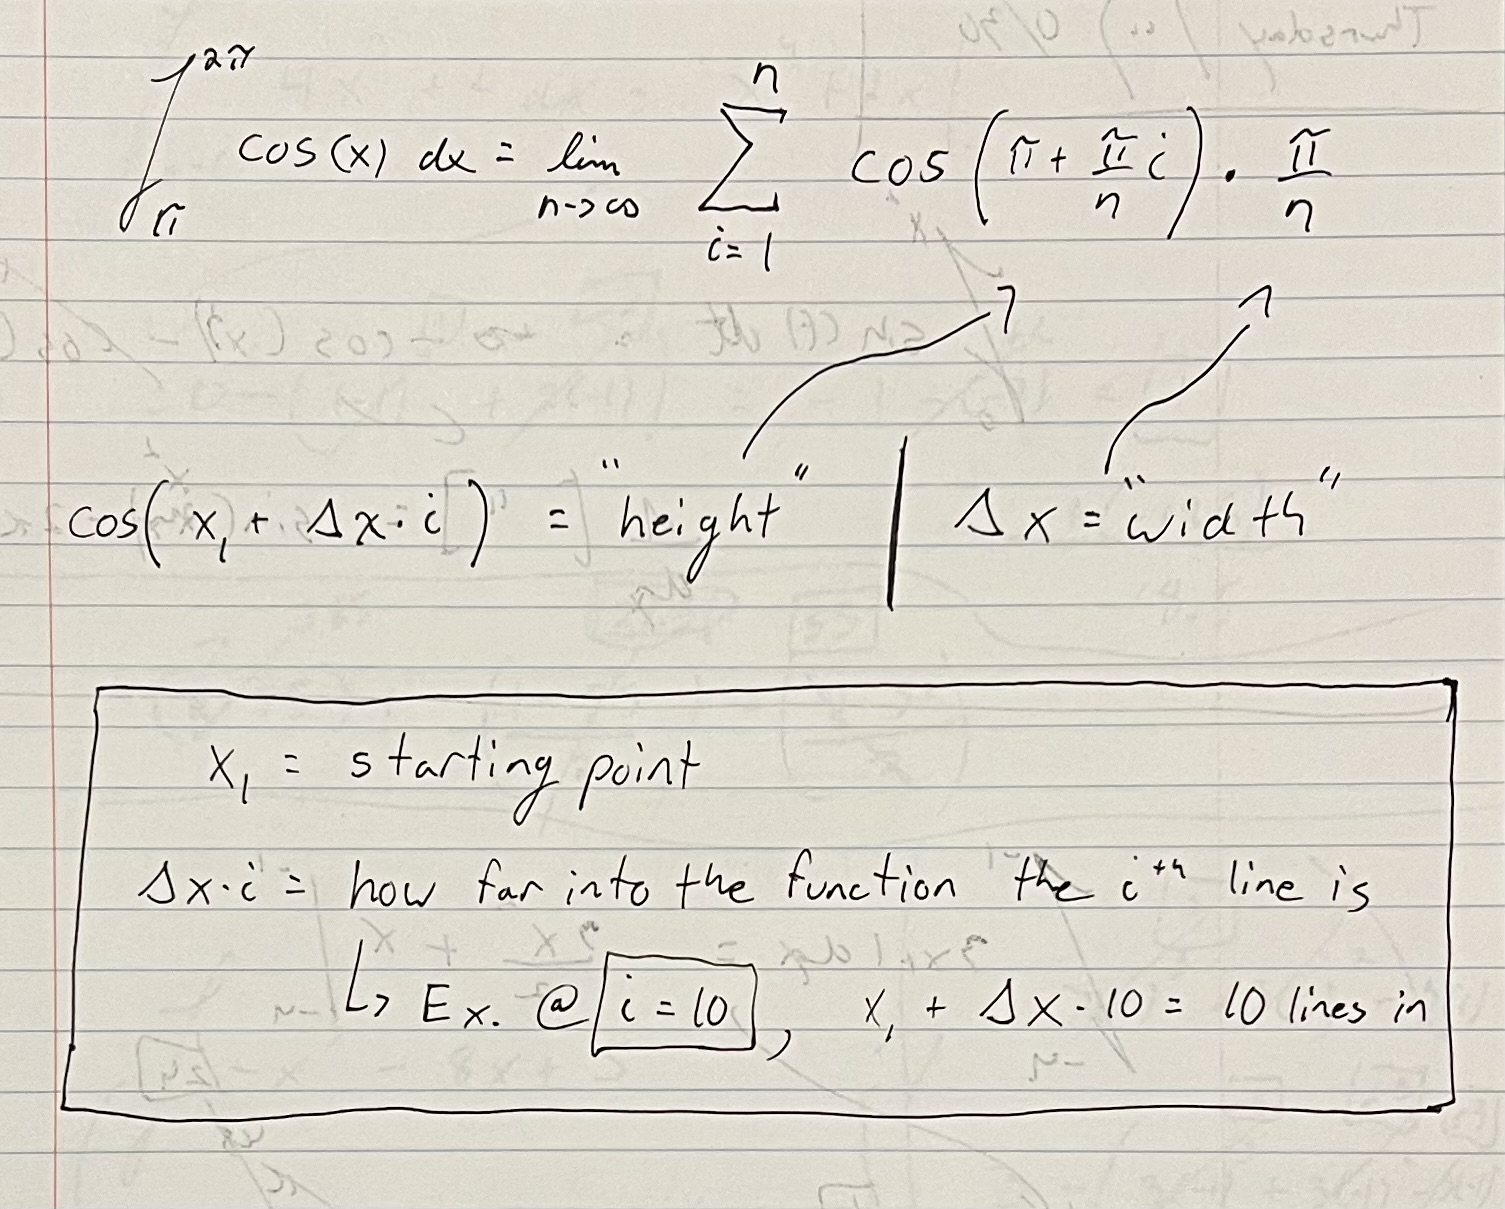 ∫_π^{2π} cos(x) dx = lim_{n->∞} Σ_{i=1}^{n} cos(π + π/n i) · π/n
cos(x₁ + Δx·i) = "height" | Δx = "width"
x₁ = starting point
Δx·i = how far into the function the i^th line is
↳ Ex. @ i = 10, x₁ + Δx·10 = 10 lines in